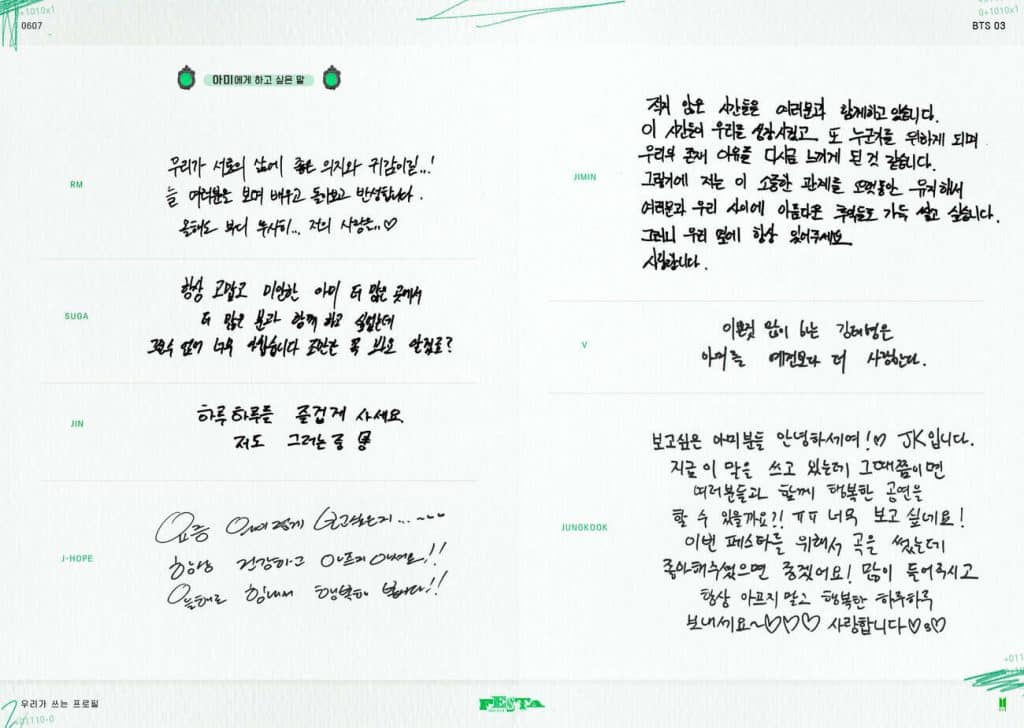 +1010x1
0607
0+1010x1
BTS 03
아미에게 하고 싶은 말
RM
우리가 서로의 삶에 좋은 의지와 귀감이길..!
늘 여러분을 보며 배우고 돌아보고 반성합니다.
올해도 부디 무사히... 저의 사랑은..♡
SUGA
항상 고맙고 미안한 아미 더 많은 곳에서
더 많은 분과 함께 하고 싶었는데
그럴수 없어 너무 아쉽습니다 조만간 꼭 봐요 알겠죠?
JIN
하루하루를 즐겁게 사세요
저도 그러는 중
J-HOPE
요즘 아미 보고싶은지...~~~
항상 건강하고 아프지 마세요!!
올해도 힘내서 행복해 봅시다!!
JIMIN
적지 않은 시간들을 여러분과 함께하고 있습니다.
이 시간들이 우리를 성장시켰고 또 누군가를 위하게 되며
우리의 존재 이유를 다시금 느끼게 된 것 같습니다.
그렇기에 저는 이 소중한 관계를 오랫동안 유지해서
여러분과 우리 사이에 아름다운 추억들로 가득 쌓고 싶습니다.
그러니 우리 옆에 항상 있어주세요
사랑합니다.
V
이쁜것 많이 보는 김태형은
아미를 예전보다 더 사랑한다.
JUNGKOOK
보고싶은 아미분들 안녕하세여!♡ JK입니다.
지금 이 말을 쓰고 있는데 그때쯤이면
여러분들과 함께 행복한 공연을
할 수 있을까요?! ㅠㅠ 너무 보고 싶네요!
이번 페스타를 위해서 곡을 썼는데
좋아해주셨으면 좋겠어요! 많이 들어주시고
항상 아프지 말고 행복한 하루하루
보내세요~♡♡♡ 사랑합니다♡s♡
우리가 쓰는 프로필
+01110-0
FESTA
+011